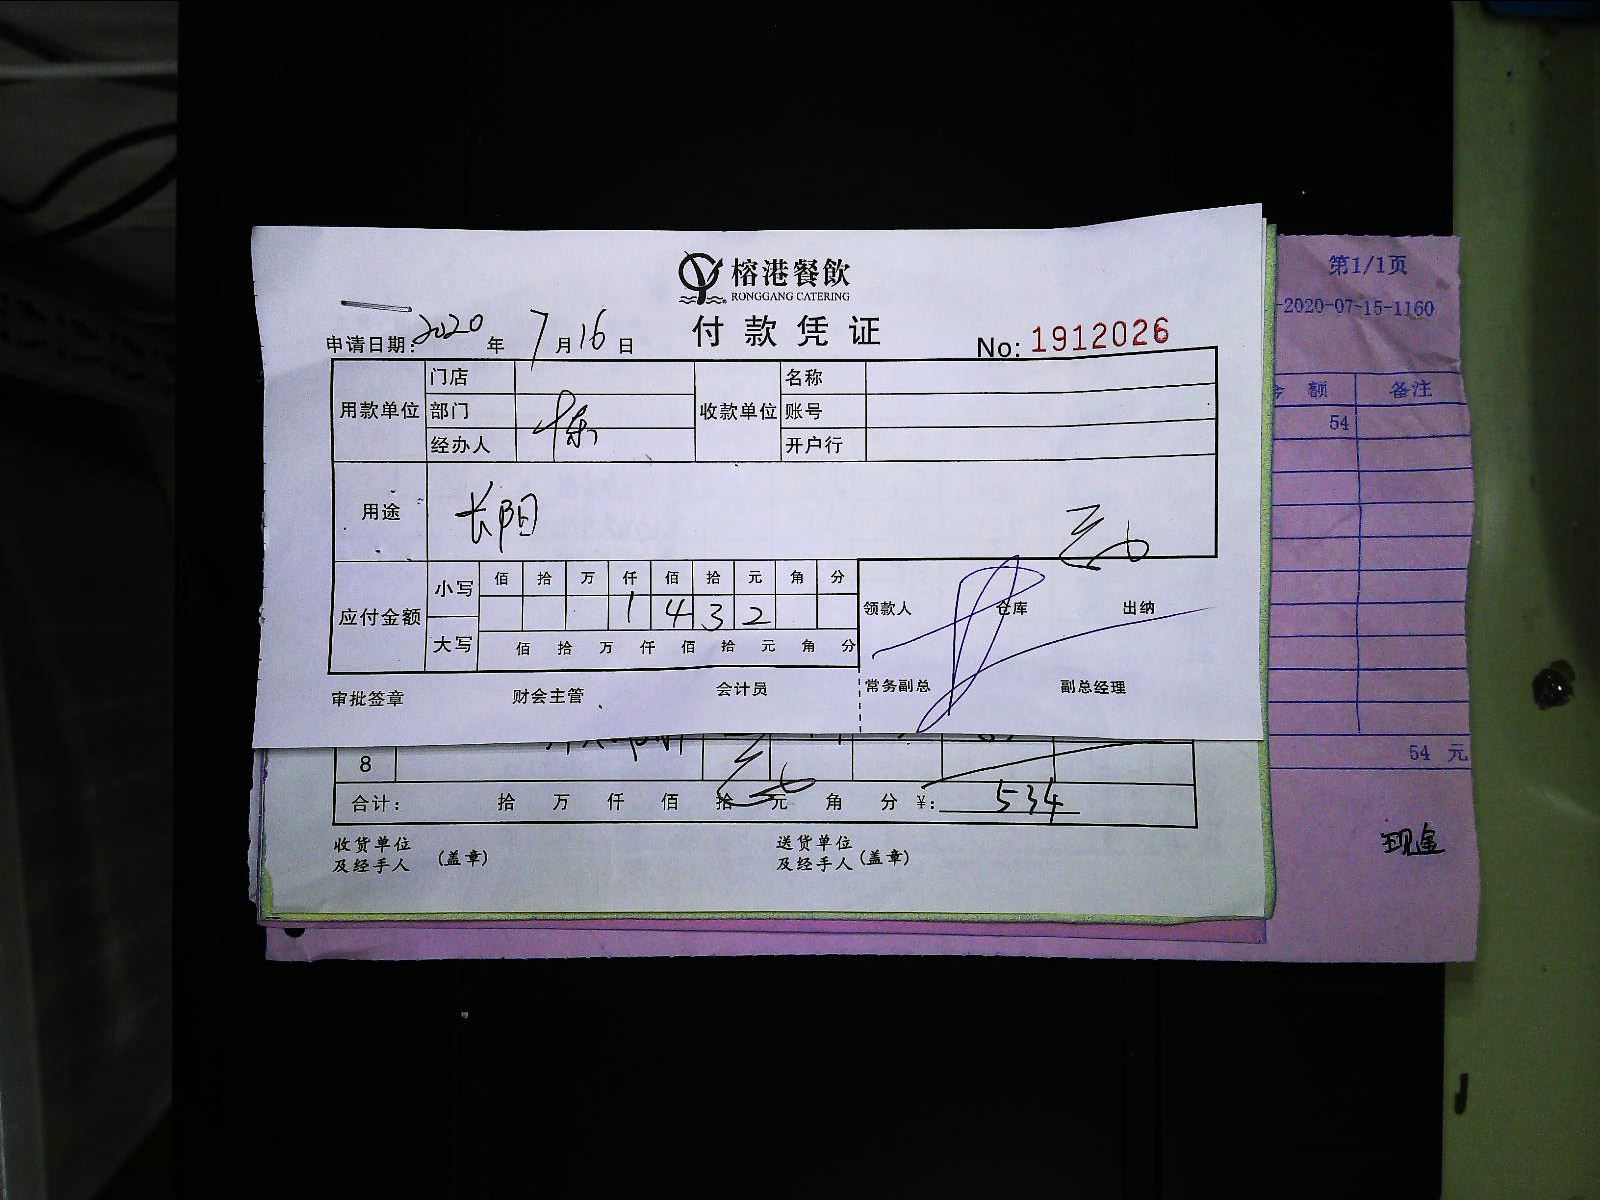 榕港餐飲
RONGGANG CATERING
付款凭证
申请日期: 2020 年 7 月 16 日
No: 1912026
用款单位 门店 收款单位 名称
部门 账号
经办人 开户行
用途 长阳
应付金额 小写 佰 拾 万 仟 佰 拾 元 角 分
1 4 3 2
大写 佰 拾 万 仟 佰 拾 元 角 分
领款人 仓库 出纳
审批签章 财会主管 会计员 常务副总 副总经理
8
合计: 拾 万 仟 佰 拾 元 角 分 ¥: 534
收货单位
及经手人 (盖章)
送货单位
及经手人 (盖章)
第1/1页
-2020-07-15-1160
额 备注
54
54 元
现金